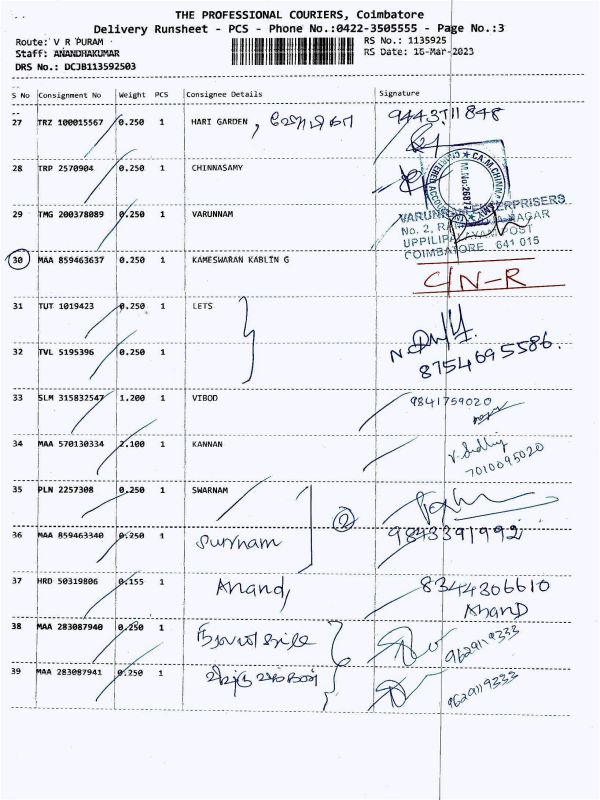 THE PROFESSIONAL COURIERS, Coimbatore
Delivery Runsheet - PCS - Phone No.:0422-3505555 - Page No.:3
Route: V R PURAM RS No.: 1135925
Staff: ANANDHAKUMAR RS Date: 16-Mar-2023
DRS No.: DCJB113592503
S No Consignment No Weight PCS Consignee Details Signature
27 TRZ 100015567 0.250 1 HARI GARDEN, 9443711848
28 TRP 2570904 0.250 1 CHINNASAMY
CHARTERED ACCOUNTANT
29 TMG 200378089 0.250 1 VARUNNAM
No. 2, NAGAR
UPPILIPALAYAM POST
COIMBATORE 641 015
30 MAA 859463637 0.250 1 KAMESWARAN KABLIN G C/N-R
31 TUT 1019423 0.250 1 LETS
32 TVL 5195396 0.250 1 8754695586.
33 SLM 315832547 1.200 1 VIBOD 9841759020
34 MAA 570130334 2.100 1 KANNAN
7010095020
35 PLN 2257308 0.250 1 SWARNAM
2
36 MAA 859463340 0.250 1 9843391992
37 HRD 50319806 0.155 1 Anand, 8344306610
Anand
38 MAA 283087940 0.250 1 9629119333
39 MAA 283087941 0.250 1 9629119333